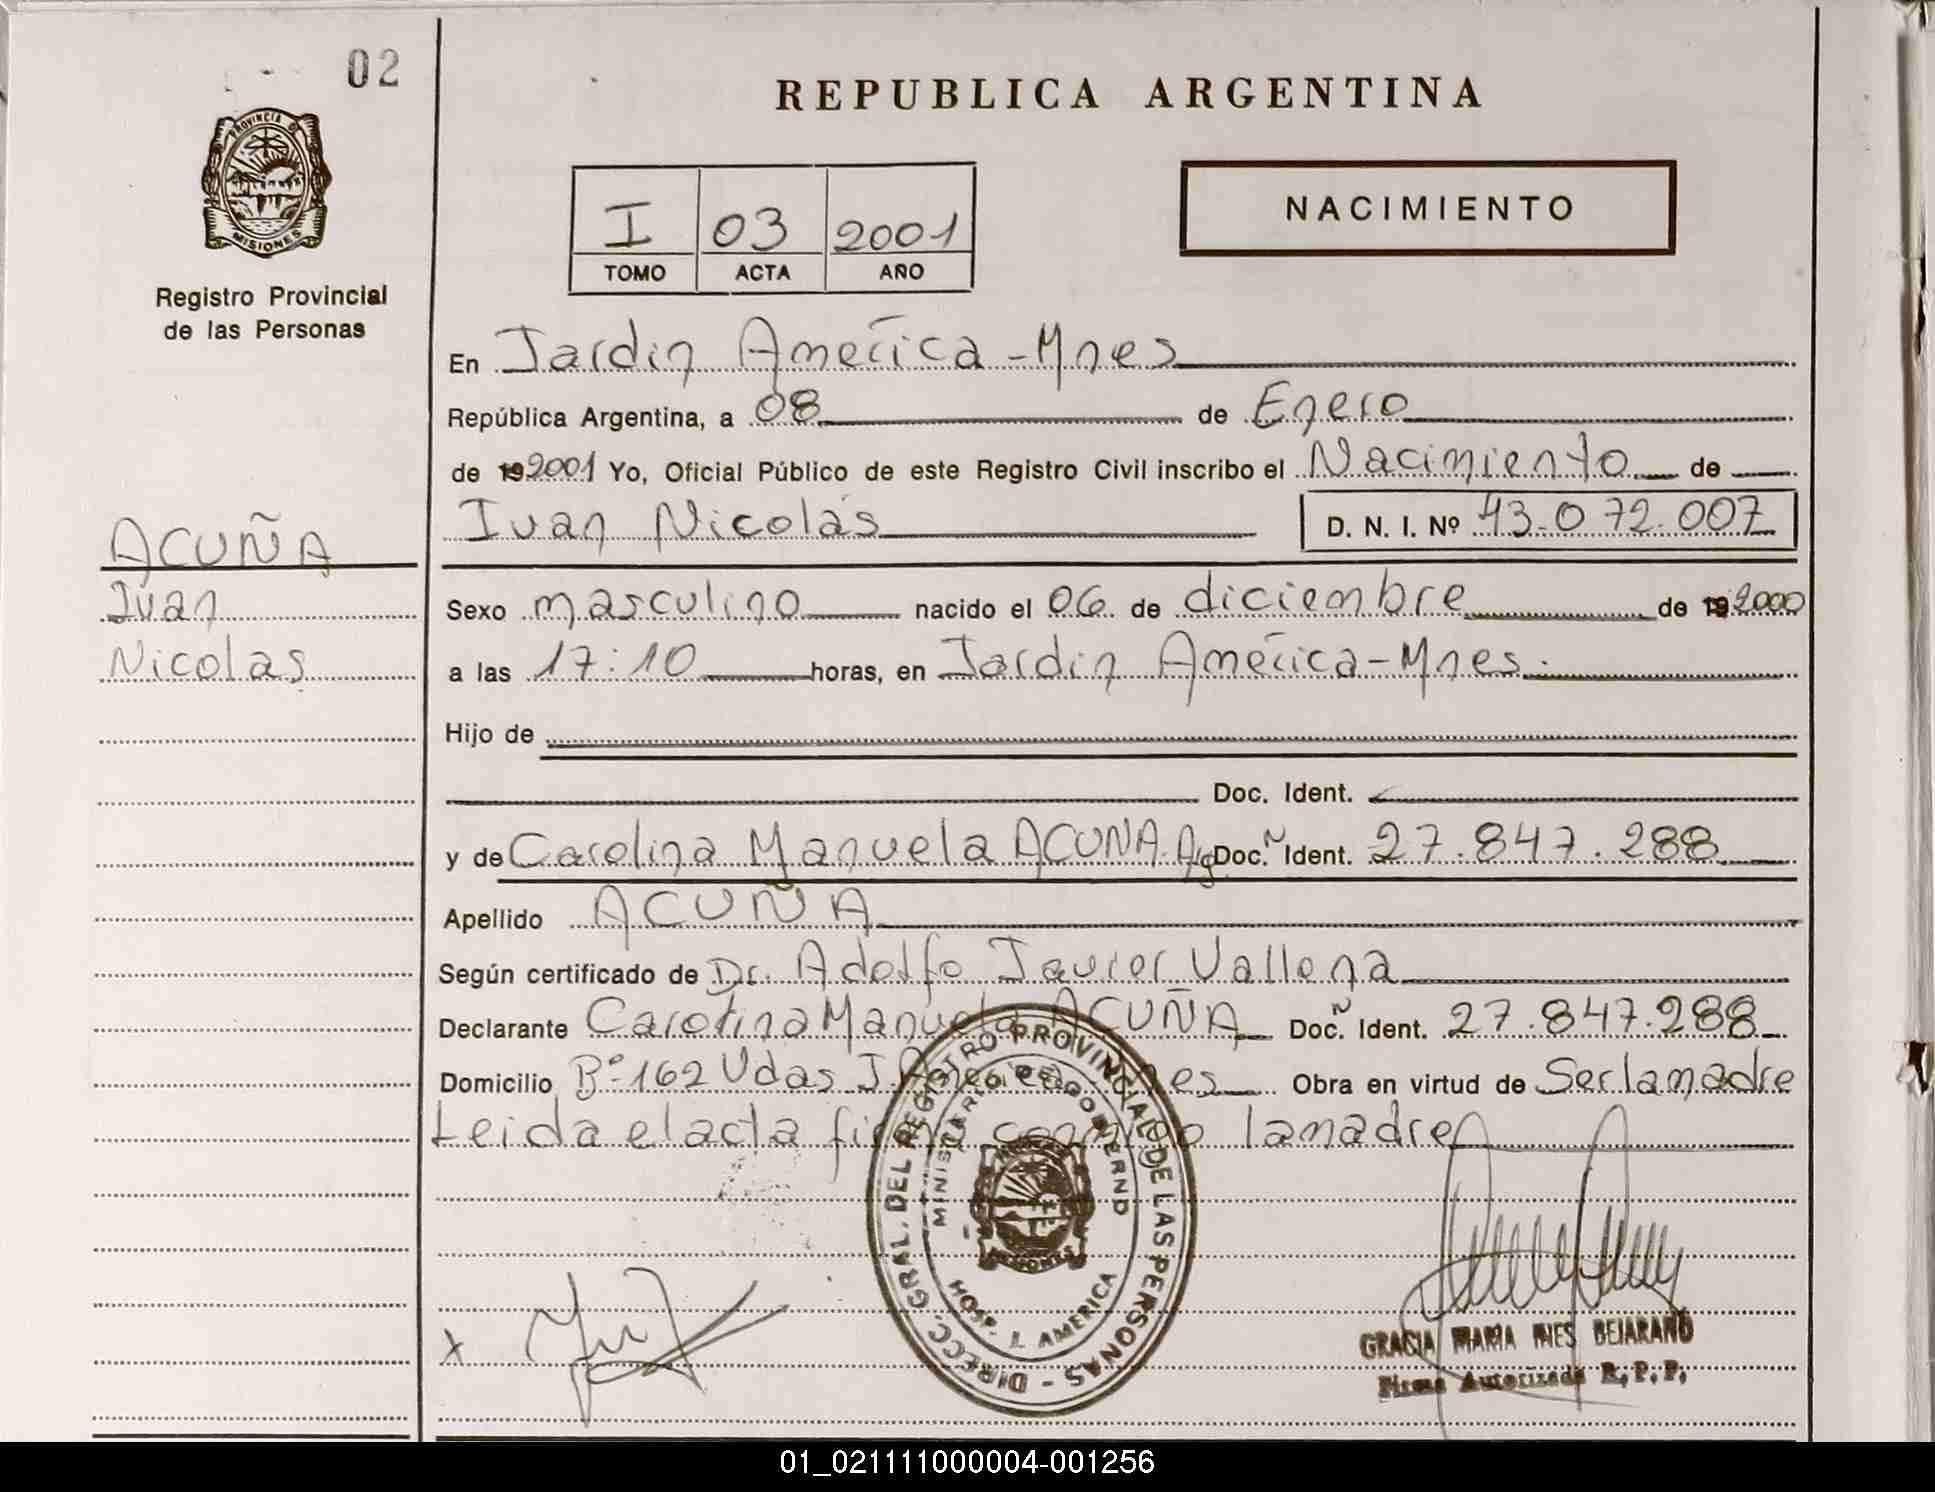 02
PROVINCIA D
MISIONES
Registro Provincial
de las Personas
REPUBLICA ARGENTINA
I 03 2001
TOMO ACTA AÑO
NACIMIENTO
En Jardin América - Mnes
República Argentina, a 08 de Enero
de 19 2001 Yo, Oficial Público de este Registro Civil inscribo el Nacimiento de
Ivan Nicolás D. N. I. Nº 43.072.007
ACUÑA
Ivan
Nicolas
Sexo masculino nacido el 06 de diciembre de 19 2000
a las 17:10 horas, en Jardin América - Mnes.
Hijo de
Doc. Ident.
y de Carolina Manuela ACUÑA. Arg Doc. Ident. 27.847.288
Apellido ACUÑA
Según certificado de Dr. Adolfo Javier Vallena
Declarante Carolina Manuela ACUÑA Doc. Ident. 27.847.288
Domicilio Bº 162 Vdas J. América - Mnes Obra en virtud de Ser la madre
Leida el acta firma conmigo la madre
DIREC. GRAL. DEL REGISTRO PROVINCIAL DE LAS PERSONAS -
MINISTERIO DE GOBIERNO
HOSP. J. AMERICA
MISIONES
X
GRACIA MARIA INES BEJARANO
Firma Autorizada R.P.P.
01_021111000004-001256